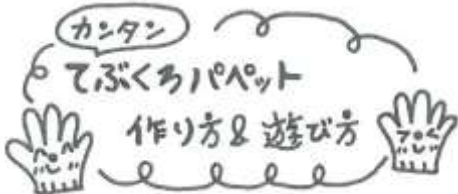 カンタン
てぶくろパペット
作り方&遊び方